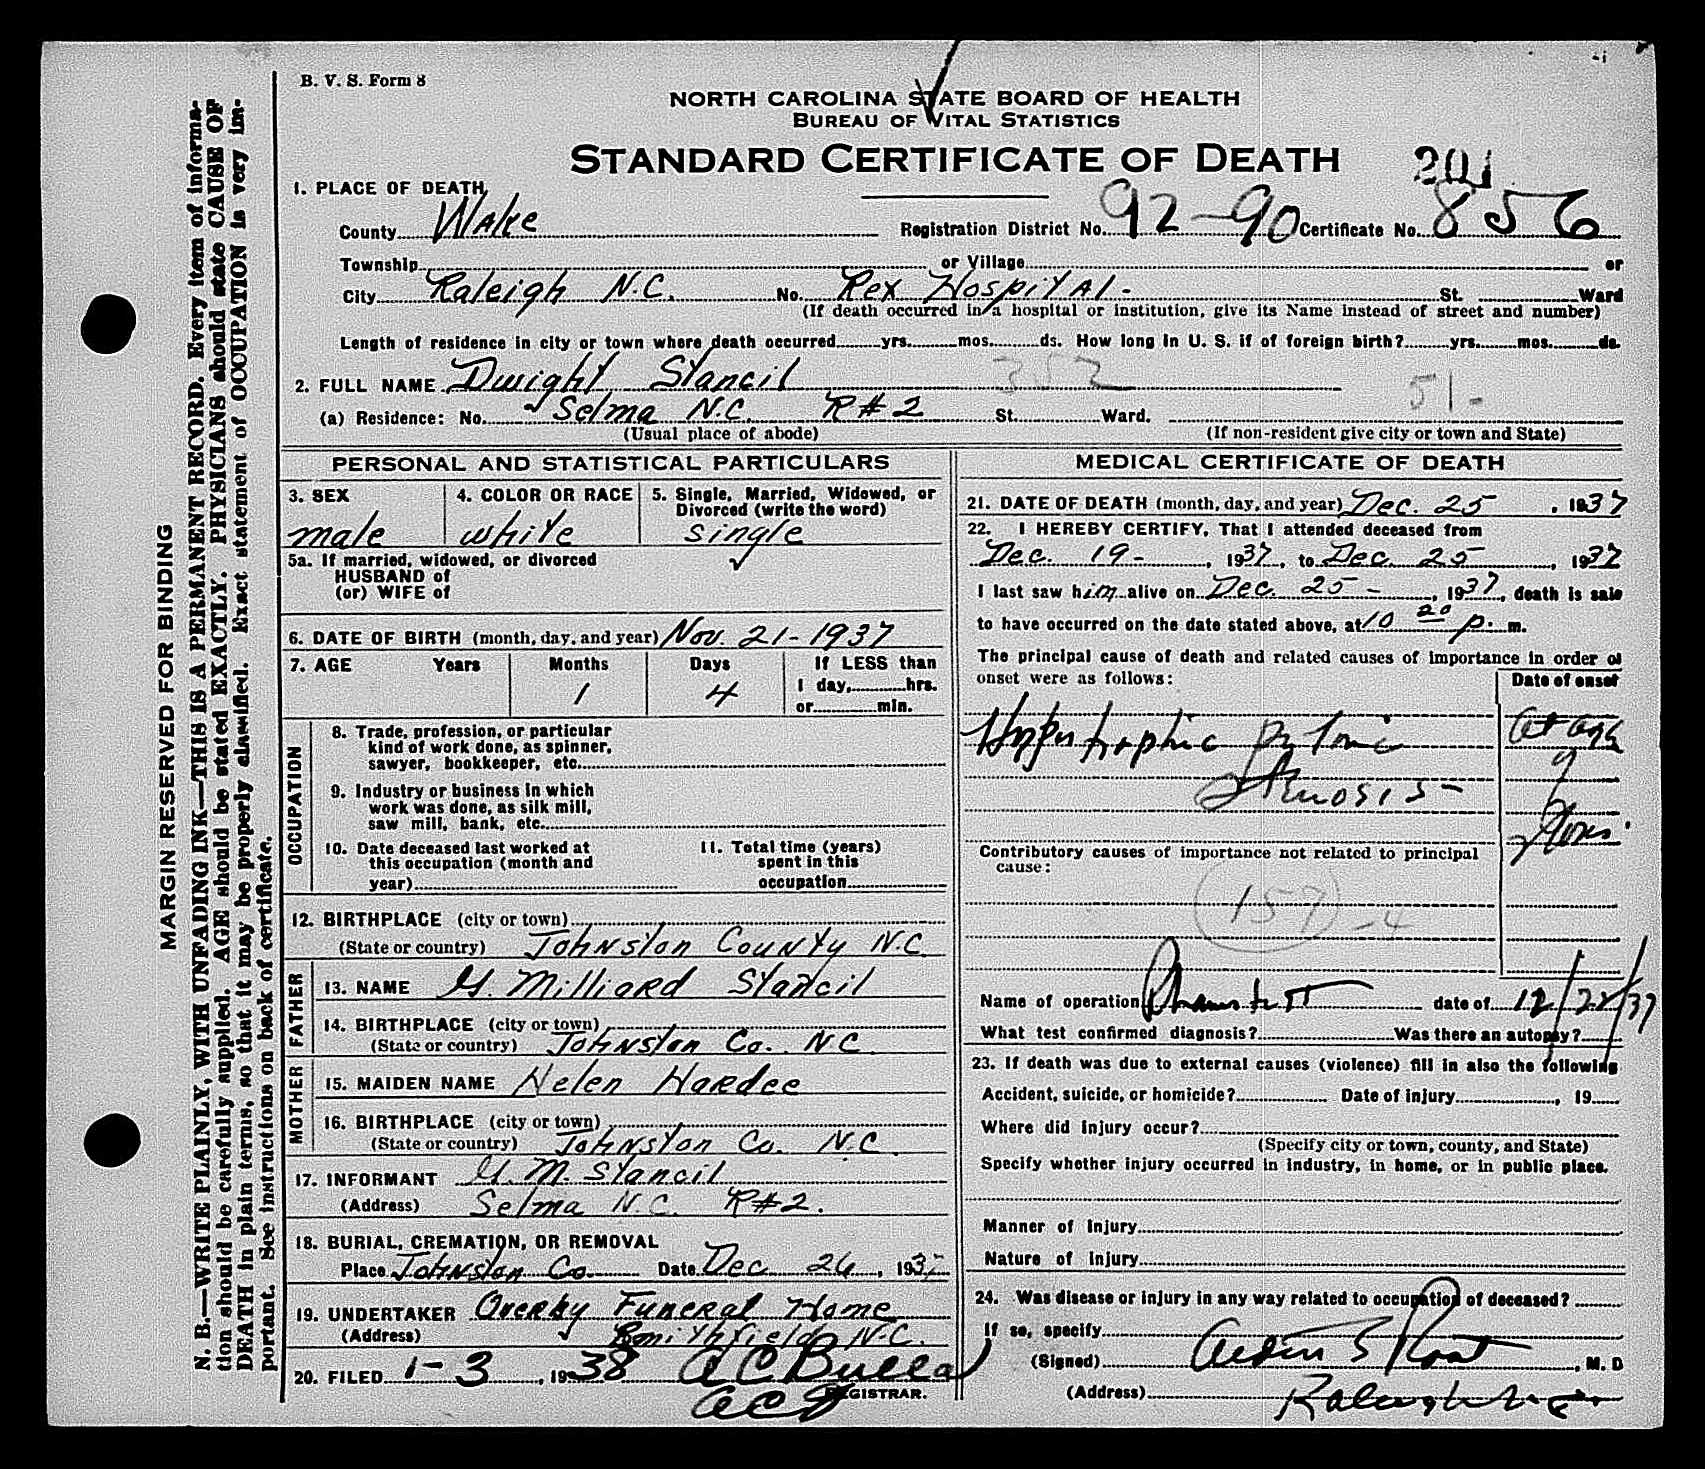 B. V. S. Form 8
NORTH CAROLINA STATE BOARD OF HEALTH
BUREAU OF VITAL STATISTICS
STANDARD CERTIFICATE OF DEATH 201
1. PLACE OF DEATH
County Wake Registration District No. 92-90 Certificate No. 856
Township or Village or
City Raleigh N.C. No. Rex Hospital - St. Ward
(If death occurred in a hospital or institution, give its Name instead of street and number)
Length of residence in city or town where death occurred yrs. mos. ds. How long in U. S. if of foreign birth? yrs. mos. ds.
2. FULL NAME Dwight Stancil 352 51-
(a) Residence: No. Selma N.C. R#2 St. Ward.
(Usual place of abode) (If non-resident give city or town and State)
PERSONAL AND STATISTICAL PARTICULARS
3. SEX 4. COLOR OR RACE 5. Single, Married, Widowed, or Divorced (write the word)
male white single
5a. If married, widowed, or divorced
HUSBAND of
(or) WIFE of
6. DATE OF BIRTH (month, day, and year) Nov. 21-1937
7. AGE Years Months Days If LESS than
1 4 1 day, hrs.
or min.
OCCUPATION
8. Trade, profession, or particular
kind of work done, as spinner,
sawyer, bookkeeper, etc.
9. Industry or business in which
work was done, as silk mill,
saw mill, bank, etc.
10. Date deceased last worked at
this occupation (month and
year)
11. Total time (years)
spent in this
occupation
12. BIRTHPLACE (city or town)
(State or country) Johnston County N.C.
FATHER
13. NAME G. Milliard Stancil
14. BIRTHPLACE (city or town)
(State or country) Johnston Co. N.C.
MOTHER
15. MAIDEN NAME Helen Hardee
16. BIRTHPLACE (city or town)
(State or country) Johnston Co. N.C.
17. INFORMANT G. M. Stancil
(Address) Selma N.C. R#2.
18. BURIAL, CREMATION, OR REMOVAL
Place Johnston Co. Date Dec 26, 1937
19. UNDERTAKER Overby Funeral Home
(Address) Smithfield N.C.
20. FILED 1-3, 1938 A C Bulla
REGISTRAR.
MEDICAL CERTIFICATE OF DEATH
21. DATE OF DEATH (month, day, and year) Dec. 25, 1937
22. I HEREBY CERTIFY, That I attended deceased from
Dec. 19-, 1937, to Dec. 25, 1937
I last saw him alive on Dec. 25-, 1937, death is said
to have occurred on the date stated above, at 10 20 p. m.
The principal cause of death and related causes of importance in order of
onset were as follows: Date of onset
Hypertrophic pyloric at age
Stenosis-
Contributory causes of importance not related to principal
cause:
157-4
Name of operation date of 12/22/37
What test confirmed diagnosis? Was there an autopsy?
23. If death was due to external causes (violence) fill in also the following
Accident, suicide, or homicide? Date of injury , 19
Where did injury occur?
(Specify city or town, county, and State)
Specify whether injury occurred in industry, in home, or in public place.
Manner of injury
Nature of injury
24. Was disease or injury in any way related to occupation of deceased?
If so, specify
(Signed) , M. D
(Address) Raleigh N.C.
MARGIN RESERVED FOR BINDING
N. B.—WRITE PLAINLY, WITH UNFADING INK—THIS IS A PERMANENT RECORD. Every item of informa-
tion should be carefully supplied. AGE should be stated EXACTLY. PHYSICIANS should state CAUSE OF
DEATH in plain terms, so that it may be properly classified. Exact statement of OCCUPATION is very im-
portant. See instructions on back of certificate.